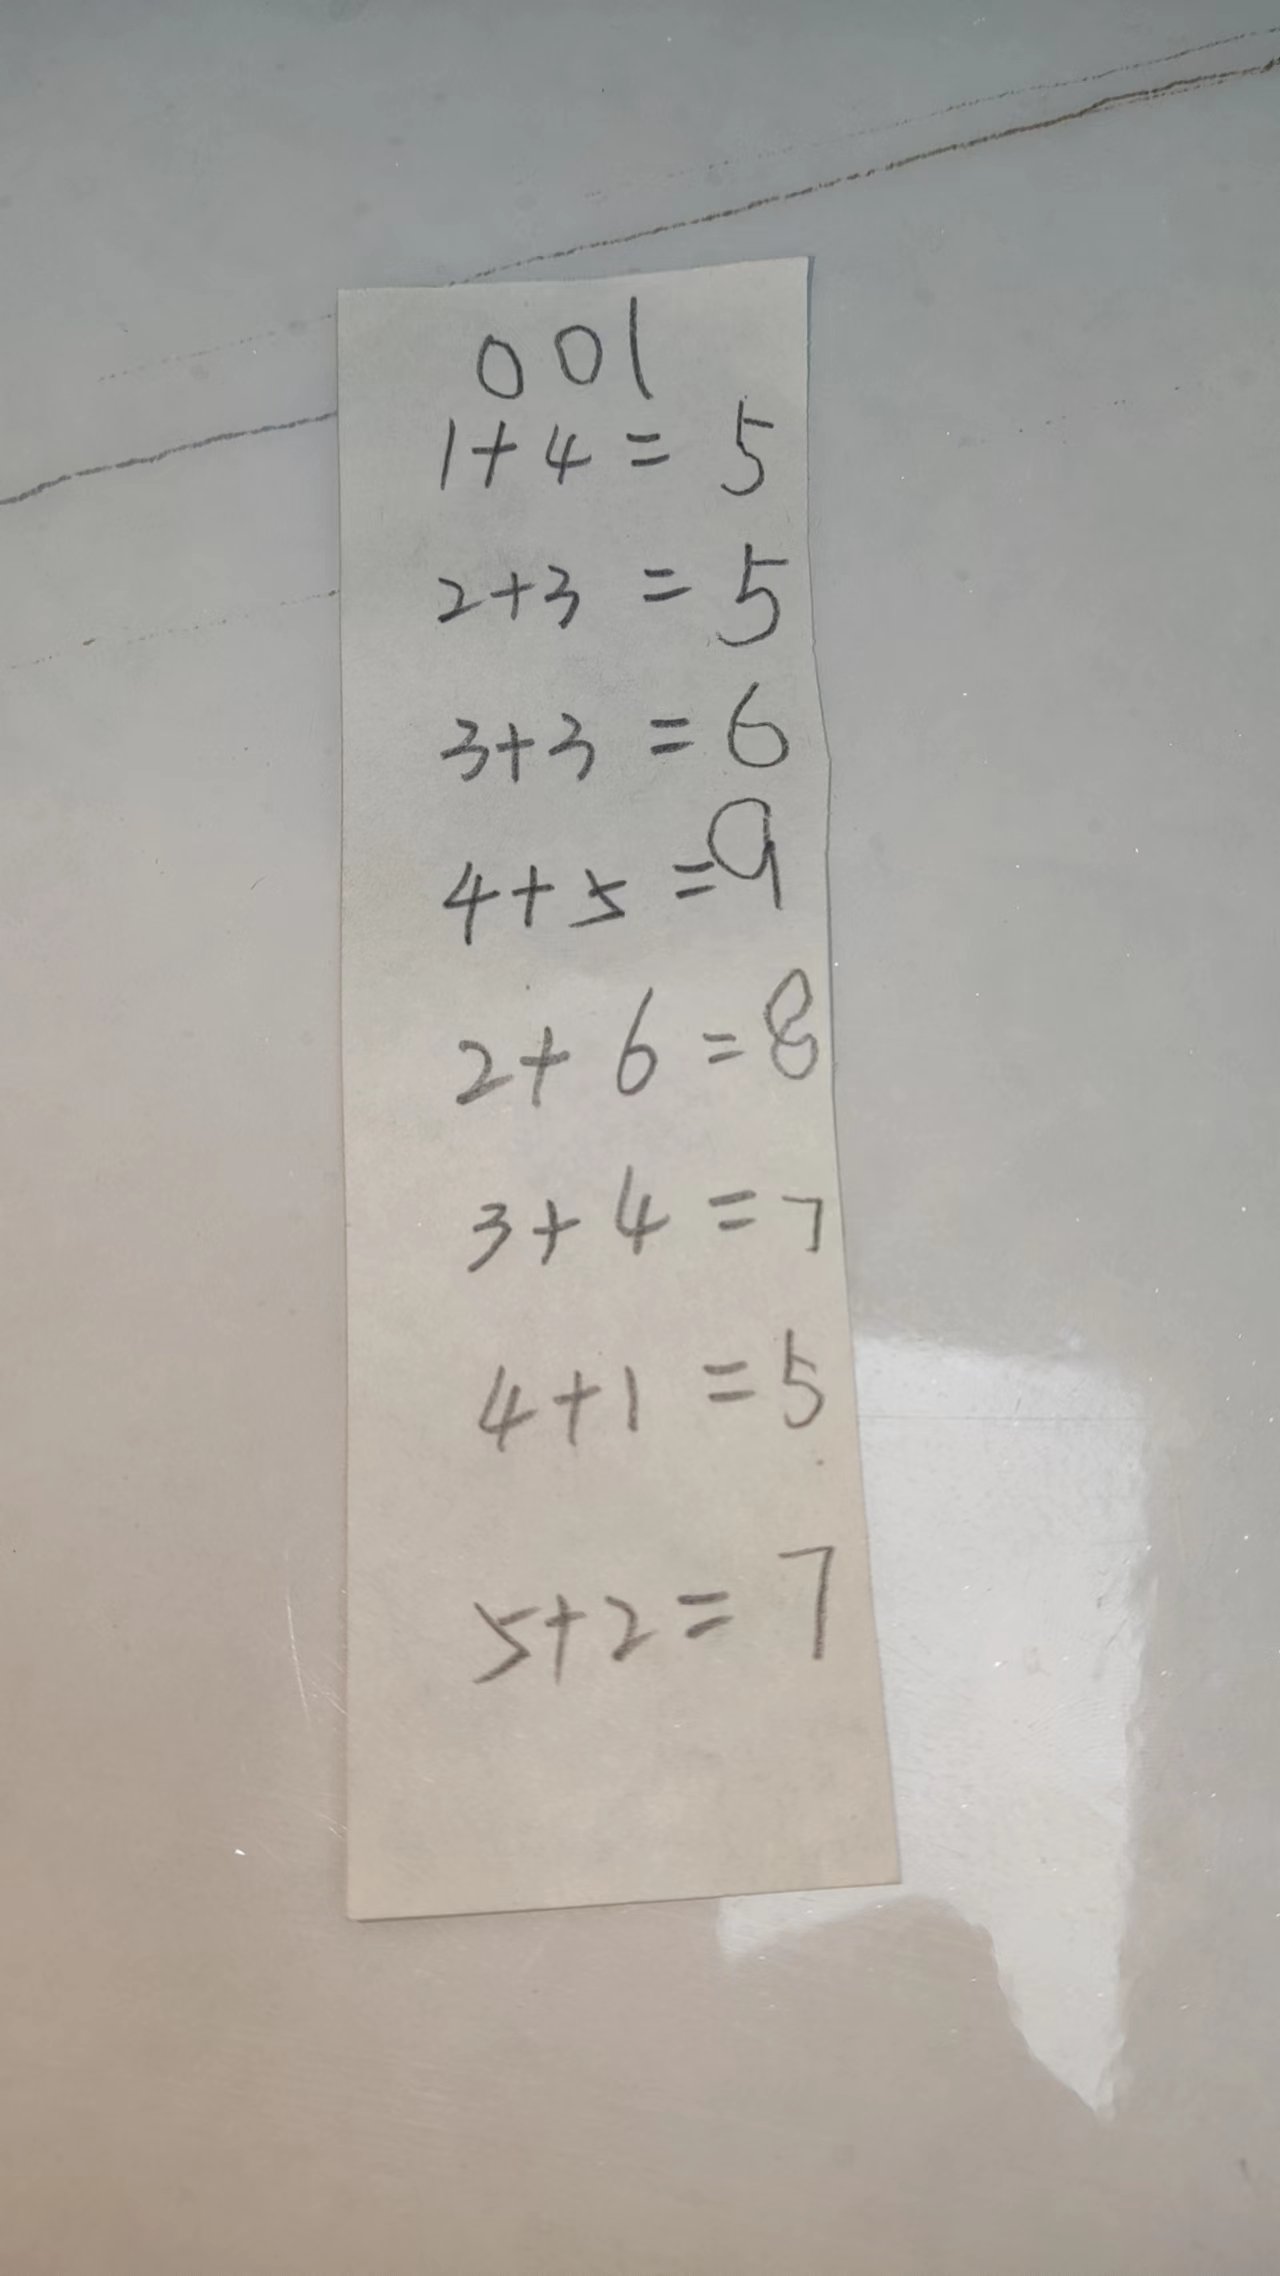 001
1+4=5
2+3=5
3+3=6
4+5=9
2+6=8
3+4=7
4+1=5
5+2=7